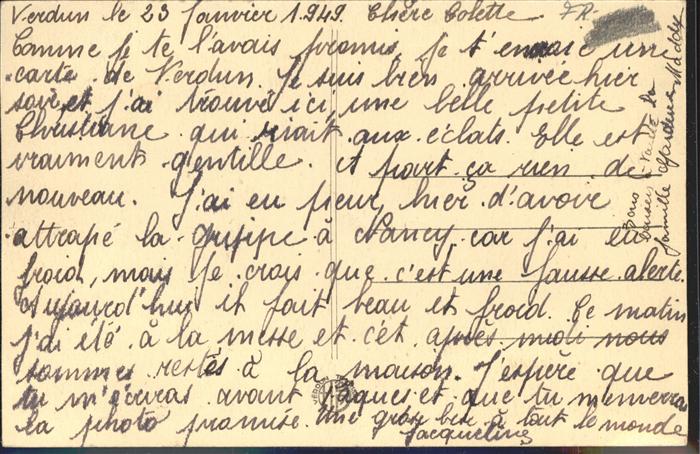 Verdun le 23 Janvier 1949. Chère Colette
Comme je te l'avais promis, je t'envoie une
carte de Verdun. Je suis bien arrivée hier
soir et j'ai trouvé ici, une belle petite
Christiane qui riait aux éclats. Elle est
vraiment gentille. A part ça rien de
nouveau. J'ai eu peur, hier d'avoir
attrapé la grippe à Nancy car j'ai eu
froid, mais je crois que c'est une fausse alerte.
Aujourd'hui it fait beau et froid. Ce matin
j'ai été à la messe et cet après midi nous
sommes restés à la maison. J'espère que
tu m'écriras avant Pâques et que tu m'enverras
la photo promise. Une grosse bise à tout le monde
Jacqueline
Bons la
famille Maddy
FR